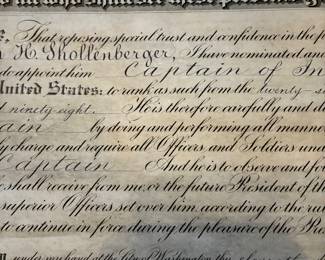 That reposing special trust and confidence in the f
H. Shollenberger, I have nominated and
do appoint him Captain of In
United States: to rank as such from the twenty-si
ninety eight. He is therefore carefully and d
ain by doing and performing all manner
ly charge and require all Officers and Soldiers und
Captain And he is to observe and fo
e shall receive from me, or the future President of t
superior Officers set over him, according to the ru
to continue in force during the pleasure of the Pre
under my hand at the City of Washington, this